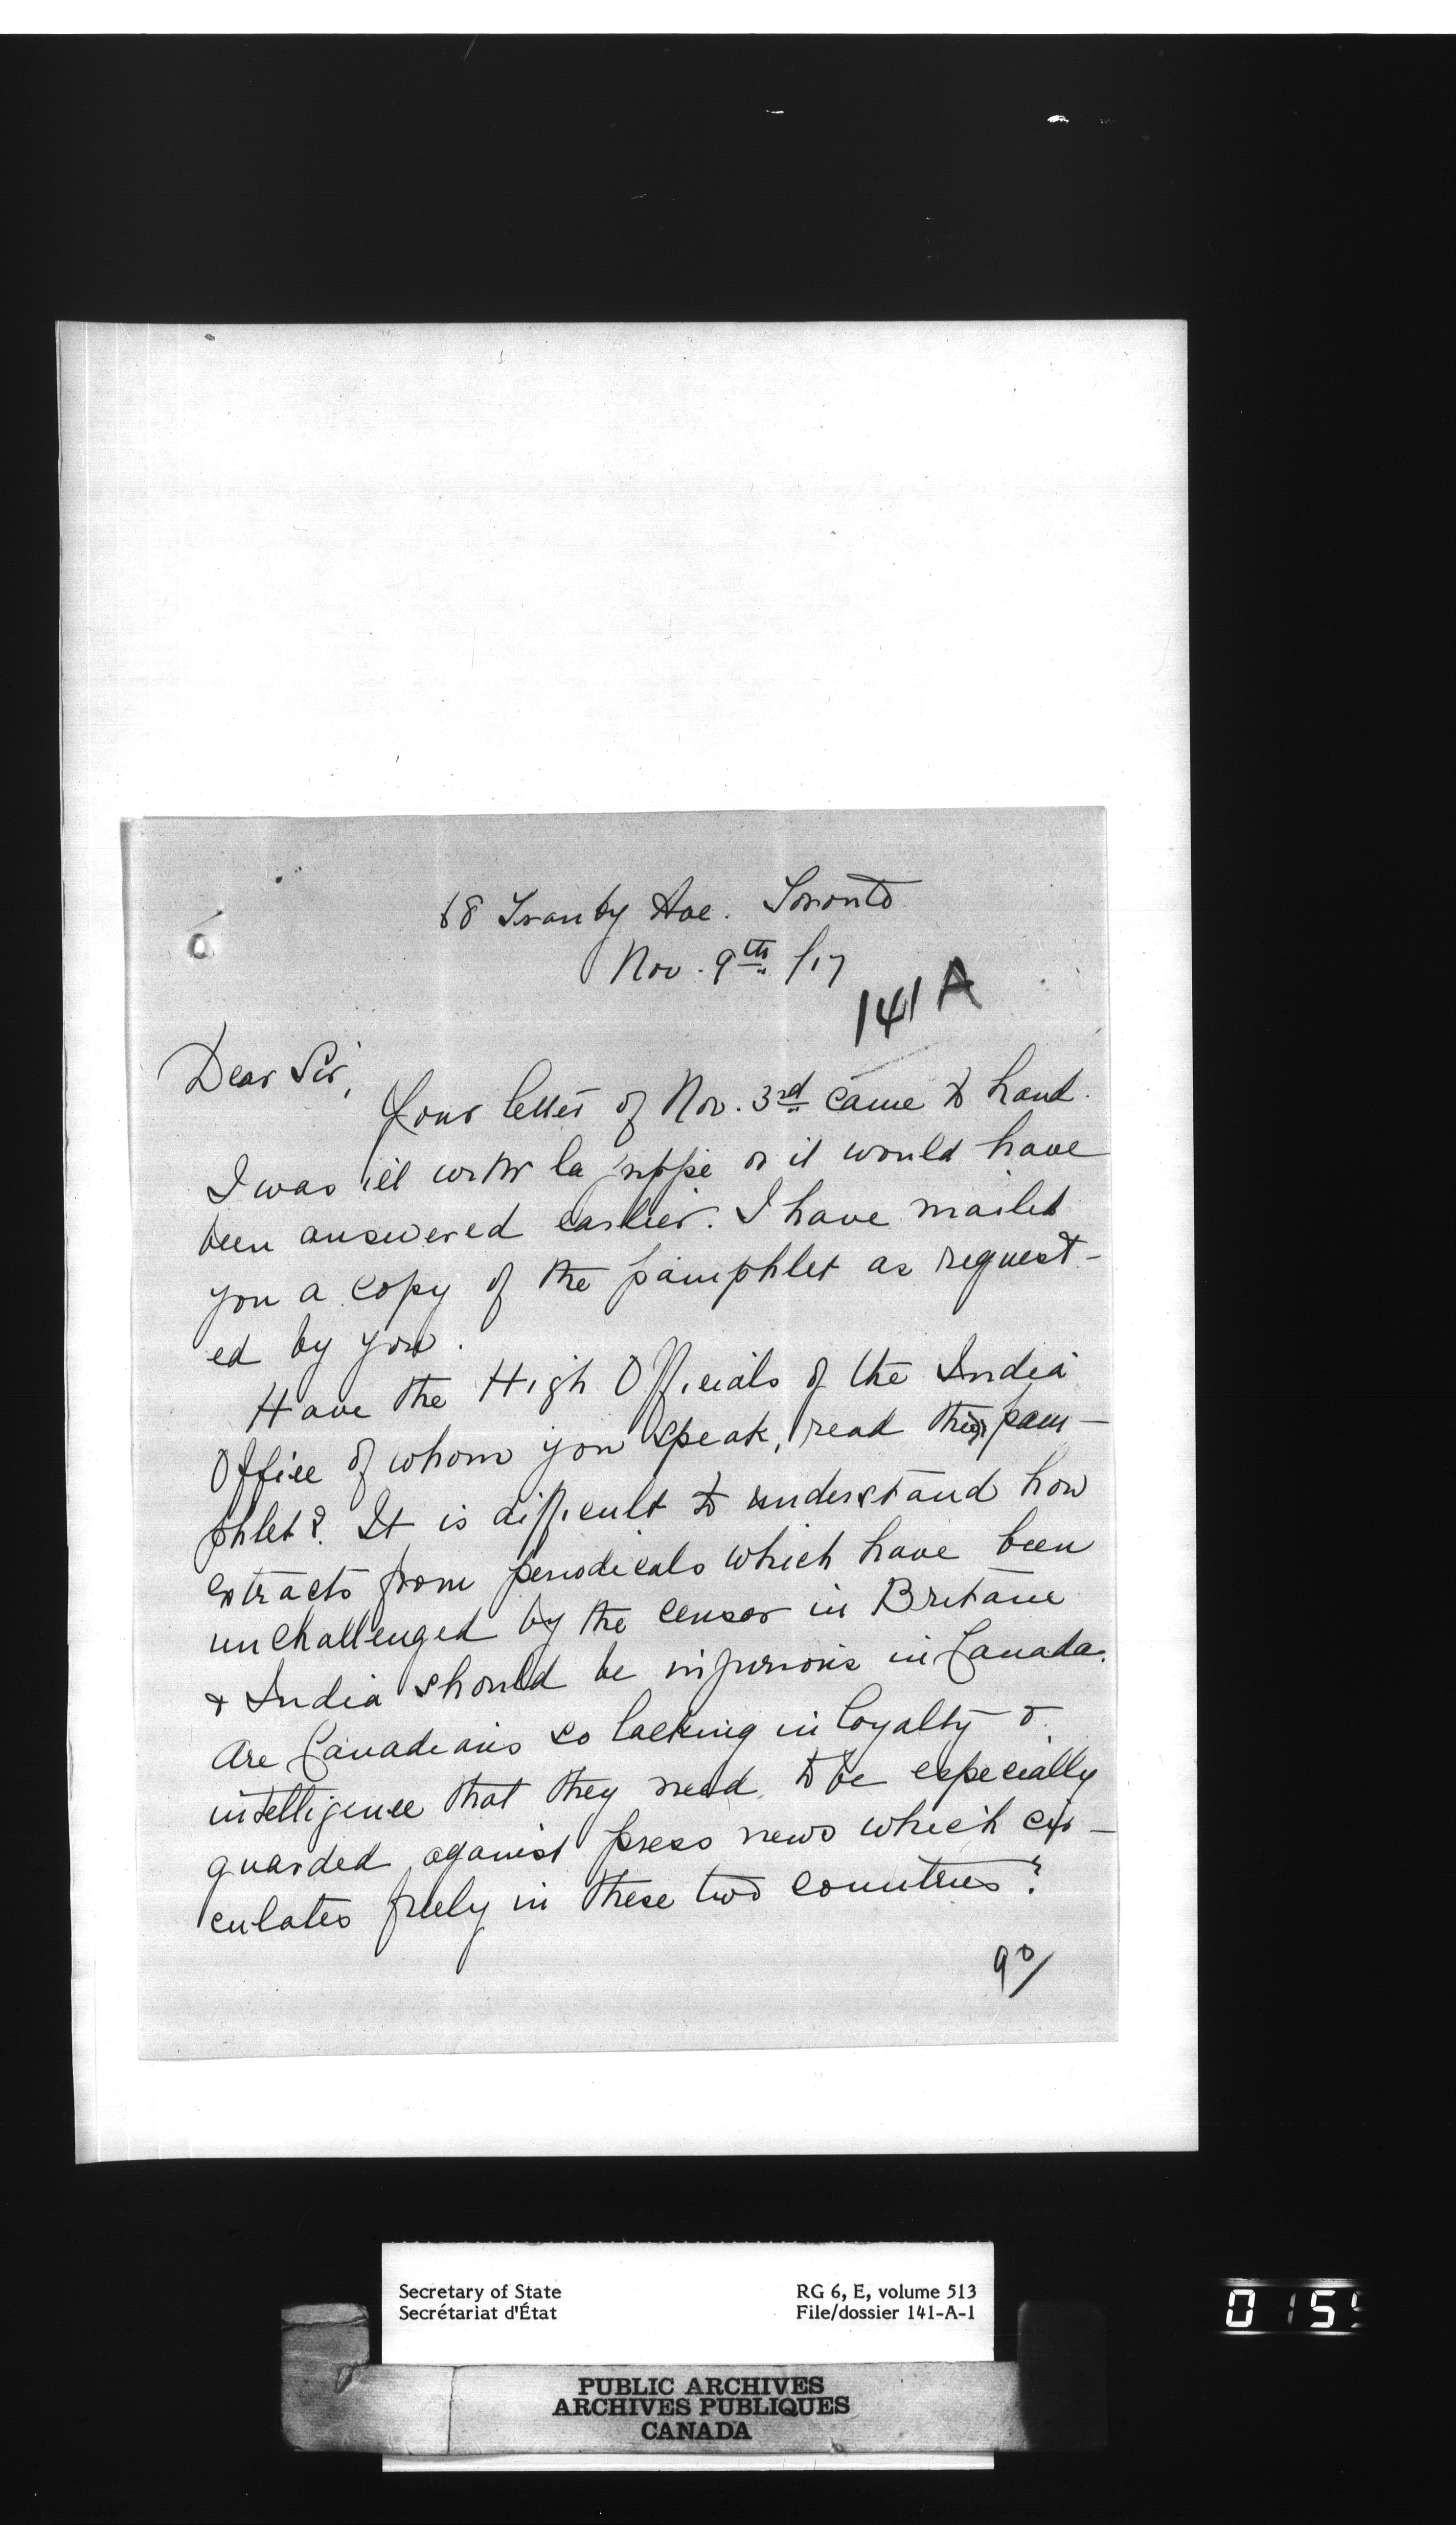 68 Tranby Ave. Toronto
Nov. 9th /17
141 A
Dear Sir,
Your letter of Nov. 3rd came to hand.
I was ill with la grippe or it would have
been answered earlier. I have mailed
you a copy of the pamphlet as request-
ed by you.
Have the High Officials of the India
Office of whom you speak, read this pam-
phlet? It is difficult to understand how
extracts from periodicals which have been
unchallenged by the censor in Britain
& India should be injurious in Canada.
Are Canadians so lacking in loyalty &
intelligence that they need to be especially
guarded against press news which cir-
culates freely in these two countries?
90/
Secretary of State
Secrétariat d'État
RG 6, E, volume 513
File/dossier 141-A-1
PUBLIC ARCHIVES
ARCHIVES PUBLIQUES
CANADA